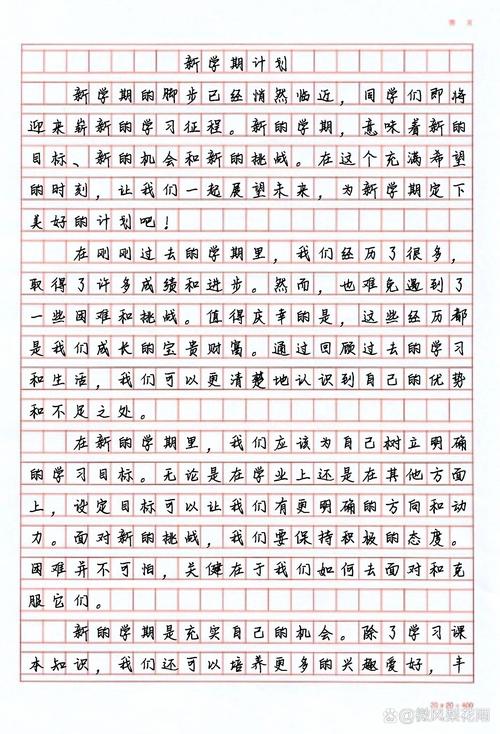 新学期计划
新学期的脚步已经悄然临近，同学们即将
迎来崭新的学习征程。新的学期，意味着新的
目标、新的机会和新的挑战。在这个充满希望
的时刻，让我们一起展望未来，为新学期定下
美好的计划吧！
在刚刚过去的学期里，我们经历了很多，
取得了许多成绩和进步。然而，也难免遇到了
一些困难和挑战。值得庆幸的是，这些经历都
是我们成长的宝贵财富。通过回顾过去的学习
和生活，我们可以更清楚地认识到自己的优势
和不足之处。
在新的学期里，我们应该为自己树立明确
的学习目标。无论是在学业上还是在其他方面
上，设定目标可以让我们有更明确的方向和动
力。面对新的挑战，我们要保持积极的态度。
困难并不可怕，关健在于我们如何去面对和克
服它们。
新的学期是充实自己的机会。除了学习课
本知识，我们还可以培养更多的兴趣爱好，丰
20×20=400
@微风梨花雨